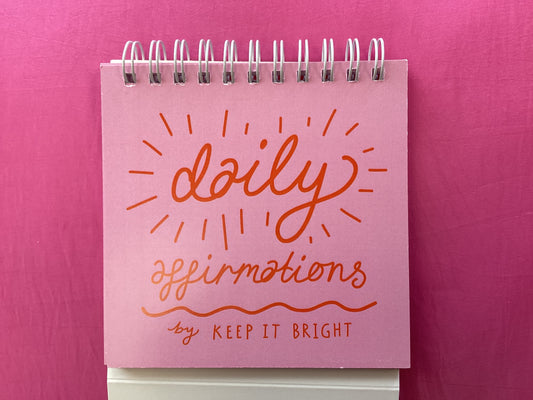 daily
affirmations
by KEEP IT BRIGHT